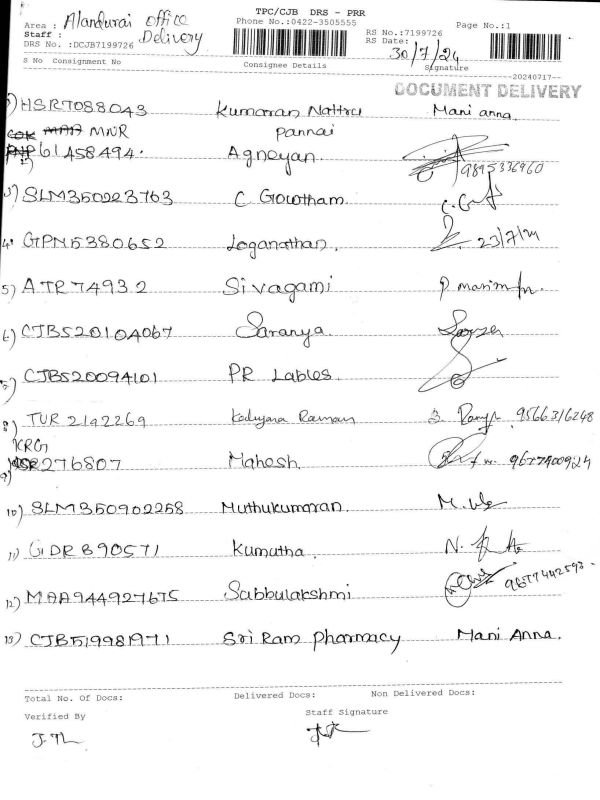 TPC/CJB DRS - PRR
Area : Alandurai office
Phone No.:0422-3505555
Page No.:1
Staff : Delivery
RS No.:7199726
DRS No. :DCJB7199726
RS Date: 30/7/24
S No Consignment No Consignee Details Signature
--20240717--
DOCUMENT DELIVERY
1) HSR7088043 Kumaran Nattru Mani anna.
MNR pannai
2) 61458494. Agneyan. 9895336960
3) SLM350223763 C Gowtham. C.
4. GPN5380652 Loganathan. 23/7/24
5) ATR74932 Sivagami P
6) CJB520104067 Saranya
7) CJB520094101 PR Lables
8) TUR 2192269 Raman 9566316248
KRG
9) 276807 Mahesh. 9677400924
10) SLM350902258 Muthukumaran. M.
11) GDR890571 Kumutha. N.
12) MAA944927675 Subbulakshmi 9677442593
13) CJB519981971 Sri Ram Pharmacy Mani Anna.
Total No. Of Docs: Delivered Docs: Non Delivered Docs:
Verified By Staff Signature